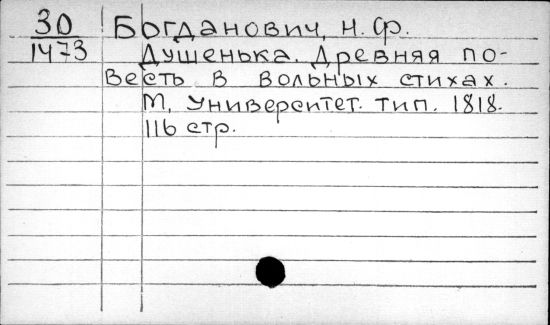 30 Богданович, И. Ф.
1473 Душенька. Древняя по-
весть в вольных стихах.
М, Университет. тип. 1818.
116 стр.